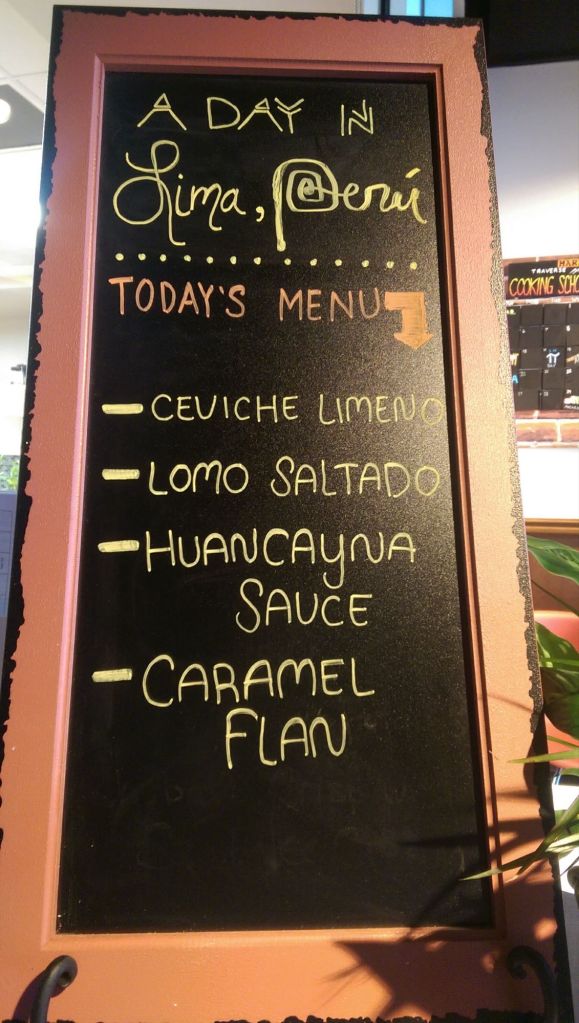 A DAY IN
Lima, Perú
TODAY'S MENU
- CEVICHE LIMENO
- LOMO SALTADO
- HUANCAYNA
SAUCE
- CARAMEL
FLAN
TRAVERSE
COOKING SCHO